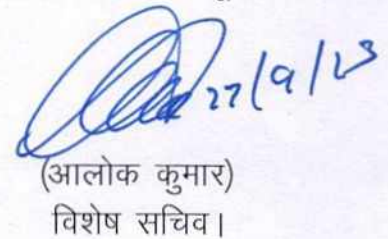 27/9/23
(आलोक कुमार)
विशेष सचिव।